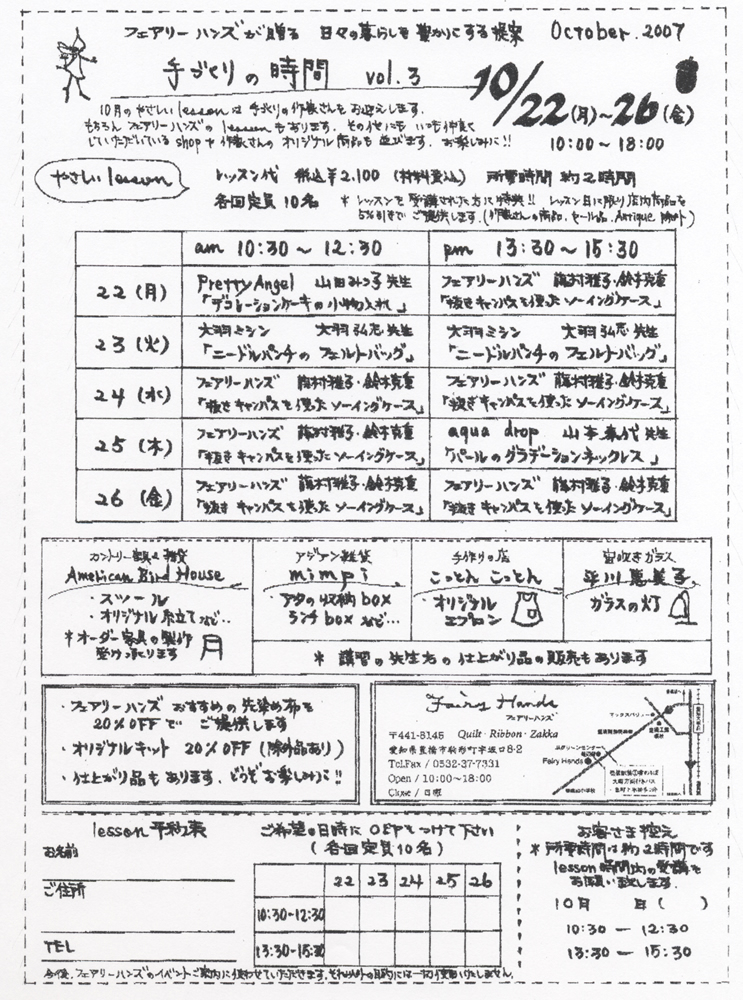 フェアリーハンズが贈る 日々の暮らしを豊かにする提案 October.2007
手づくりの時間 vol.3
10/22(月)~26(金)
10:00~18:00
10月のやさしいlessonは手づくりの作家さんもお迎えします.
もちろんフェアリーハンズのlessonもあります. その他にもいつも仲良く
していただいているshopや作家さんのオリジナル商品も並びます. お楽しみに!!
やさしいlesson
レッスン代 税込¥2,100 (材料費込) 所要時間 約2時間
各回定員10名 *レッスンを受講された方に特典!! レッスン日に限り店内商品を
5%引きでご提供します.(作家さんの商品、セール品、Antique 除外)
am 10:30~12:30 pm 13:30~15:30
22(月) Pretty Angel 山田みつ子先生 フェアリーハンズ 藤村雅子・鈴木克重
「デコレーションケーキの小物入れ」 「抜きキャンバスを使ったソーイングケース」
23(火) 大羽ミシン 大羽弘志先生 大羽ミシン 大羽弘志先生
「ニードルパンチのフェルトバッグ」 「ニードルパンチのフェルトバッグ」
24(水) フェアリーハンズ 藤村雅子・鈴木克重 フェアリーハンズ 藤村雅子・鈴木克重
「抜きキャンバスを使ったソーイングケース」 「抜きキャンバスを使ったソーイングケース」
25(木) フェアリーハンズ 藤村雅子・鈴木克重 aqua drop 山本 先生
「抜きキャンバスを使ったソーイングケース」 「パールのグラデーションネックレス」
26(金) フェアリーハンズ 藤村雅子・鈴木克重 フェアリーハンズ 藤村雅子・鈴木克重
「抜きキャンバスを使ったソーイングケース」 「抜きキャンバスを使ったソーイングケース」
カントリー家具&雑貨
American Bird House
・スツール
・オリジナル 立てなど…
*オーダー家具の製作
受けつけたまわります
アジアン雑貨
mimpi
・アタの収納box
ランチboxなど…
手作りの店
こっとん こっとん
・オリジナル
エプロン
宙吹きガラス
平川恵美子
ガラスの灯
*講習の先生方の仕上がり品の販売もあります
・フェアリーハンズおすすめの先染め布を
20%OFFでご提供します
・オリジナルキット 20%OFF (除外品あり)
・仕上がり品もあります. どうぞお楽しみに!!
Fairy Hands
フェアリーハンズ
〒441-8145 Quilt・Ribbon・Zakka
愛知県豊橋市駒形町字坂口8-2
Tel.Fax / 0532-37-7331
Open / 10:00~18:00
Close / 日曜
マックスバリュー
Fairy Hands
lesson予約表
ご希望の日時にOEPをつけて下さい
(各回定員10名)
お名前
ご住所
TEL
22 23 24 25 26
10:30-12:30
13:30-15:30
お客さま控え
*所要時間は約2時間です
lesson時間内の受講を
お願い致します.
10月 日( )
10:30 - 12:30
13:30 - 15:30
今後、フェアリーハンズのイベントご案内に使わせていただきます.それ以外の目的には一切使用いたしません.